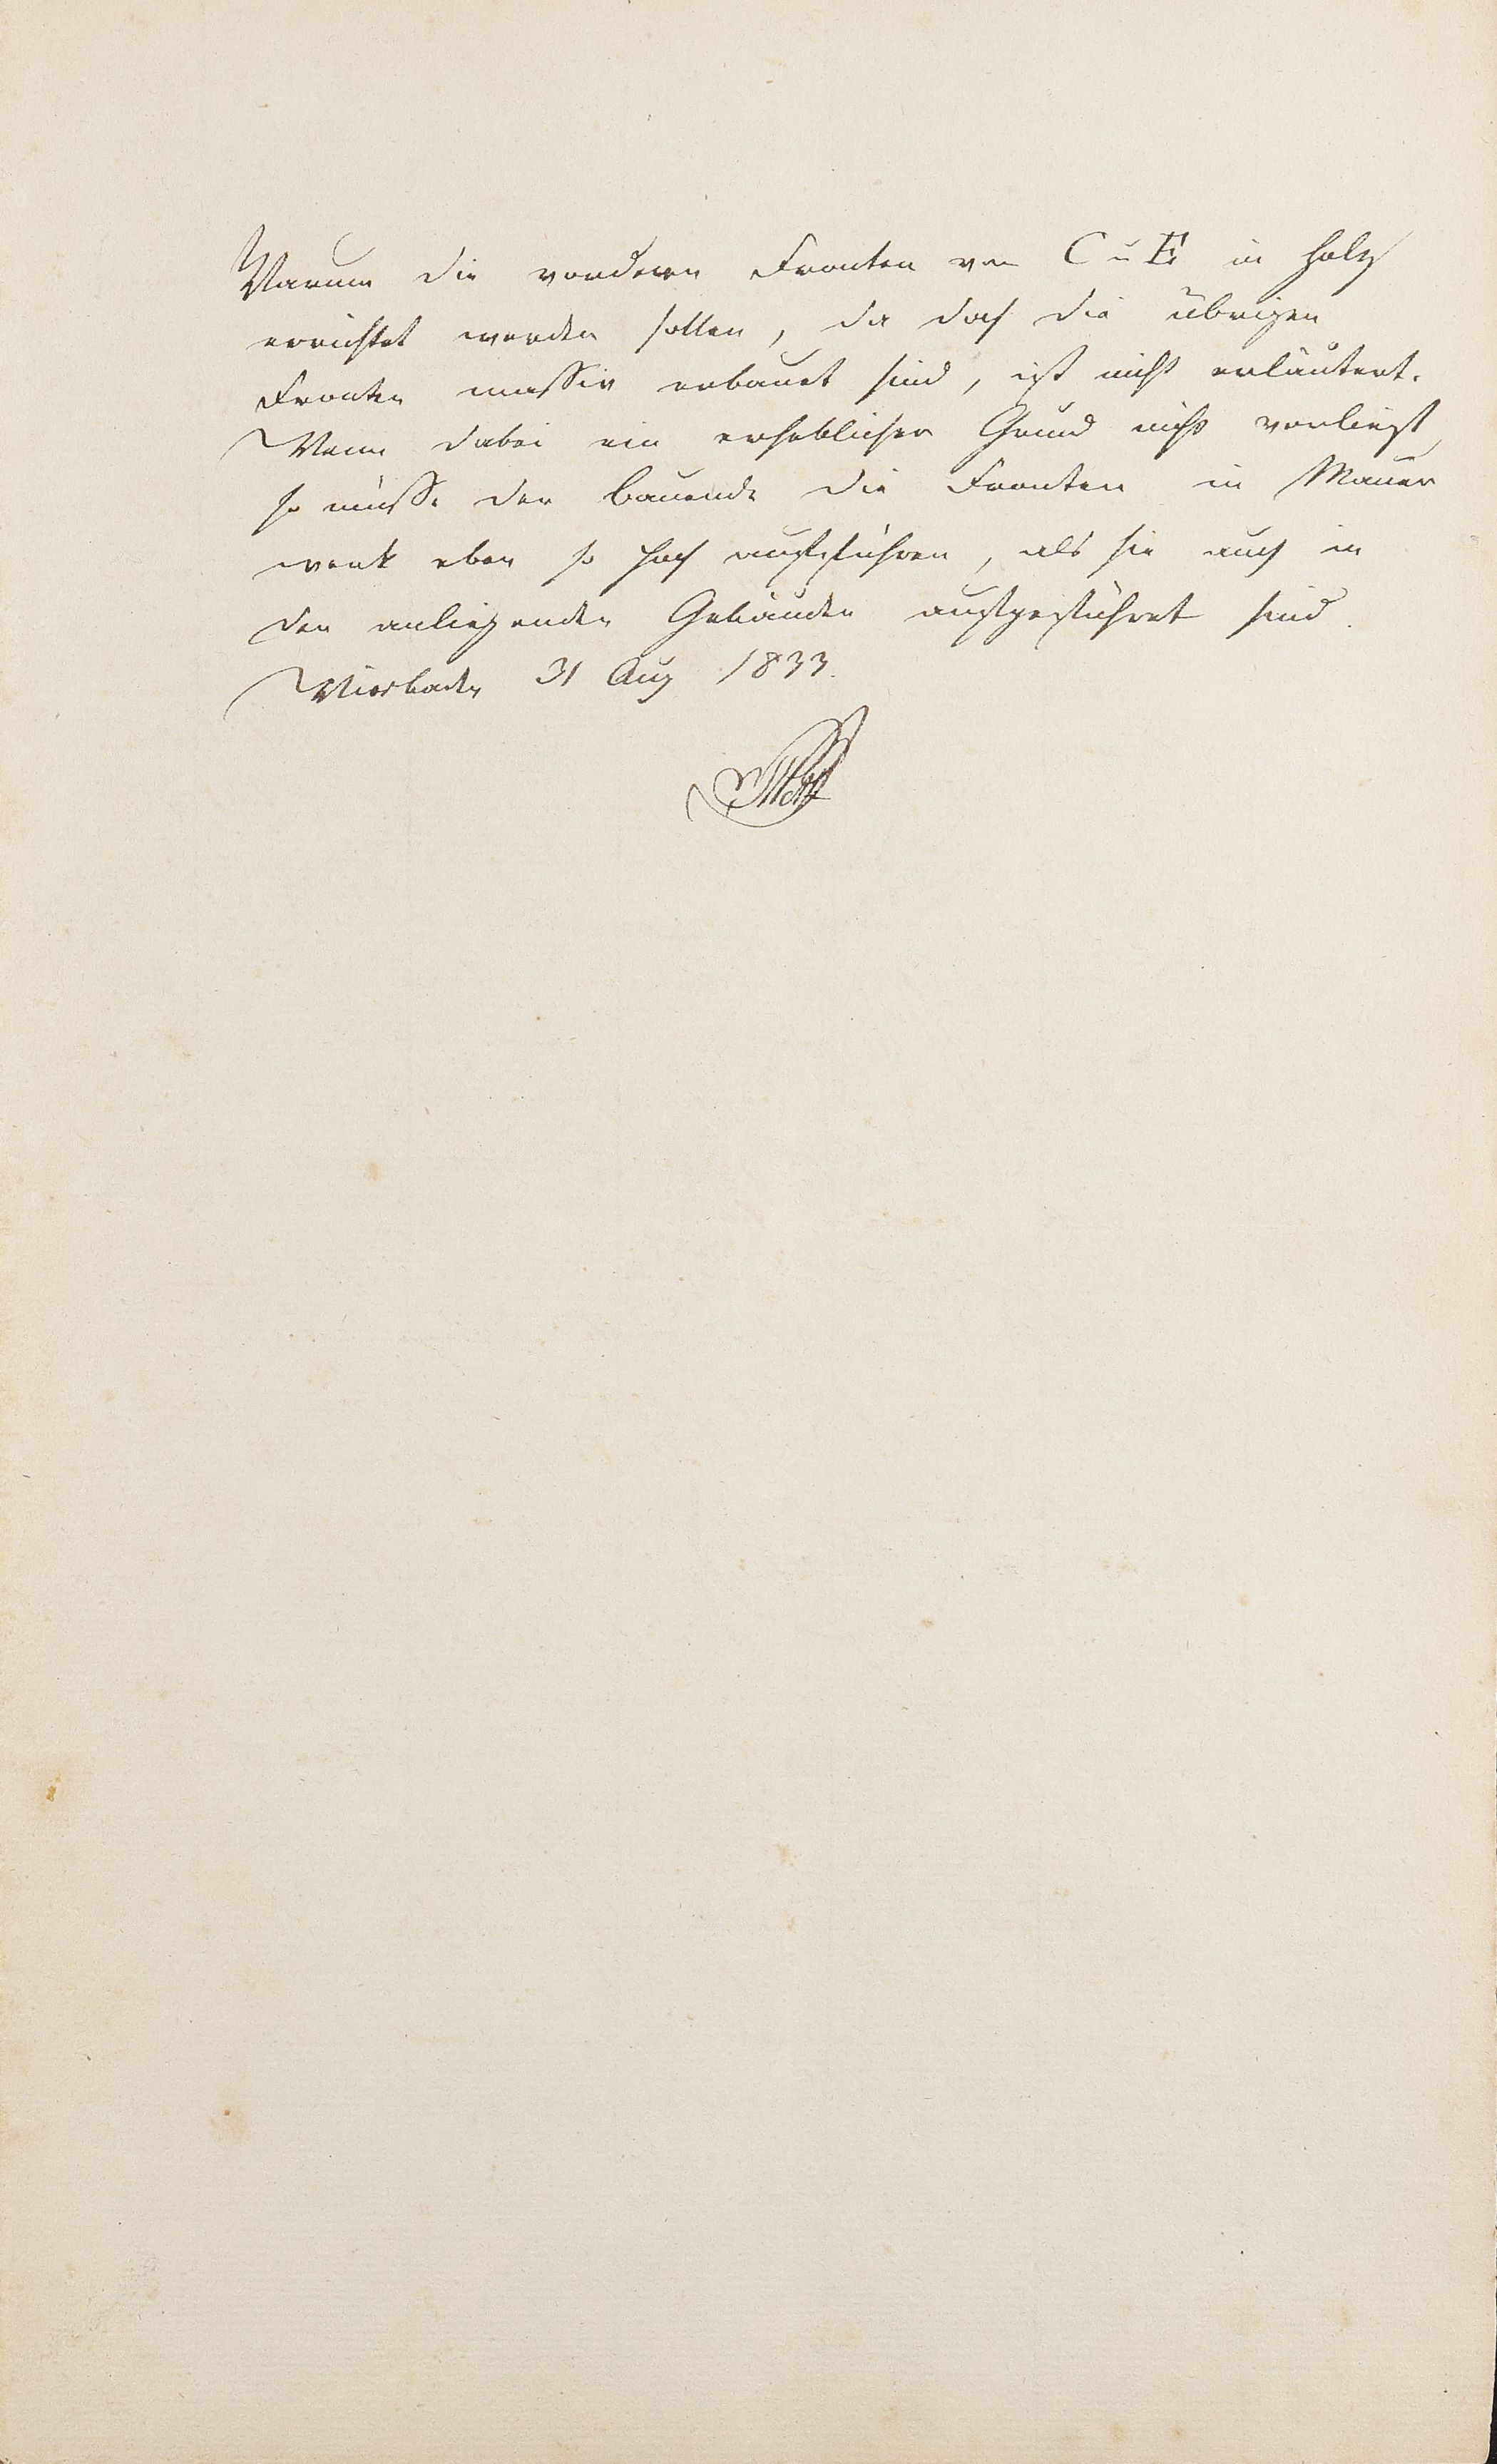 Warum die vorderen Fronten von C u E in Holz
errichtet werden sollen, da doch die übrigen
Fronten massiv erbauet sind, ist nicht erläutert.
Wenn dabei ein erheblicher Grund nicht vorliegt,
so müsse der Bauende die Fronten in Mauer
werk eben so hoch aufführen, als sie auch in
den anliegenden Gebäuden aufgeführet sind.
Wiesbaden 31 Aug 1833.